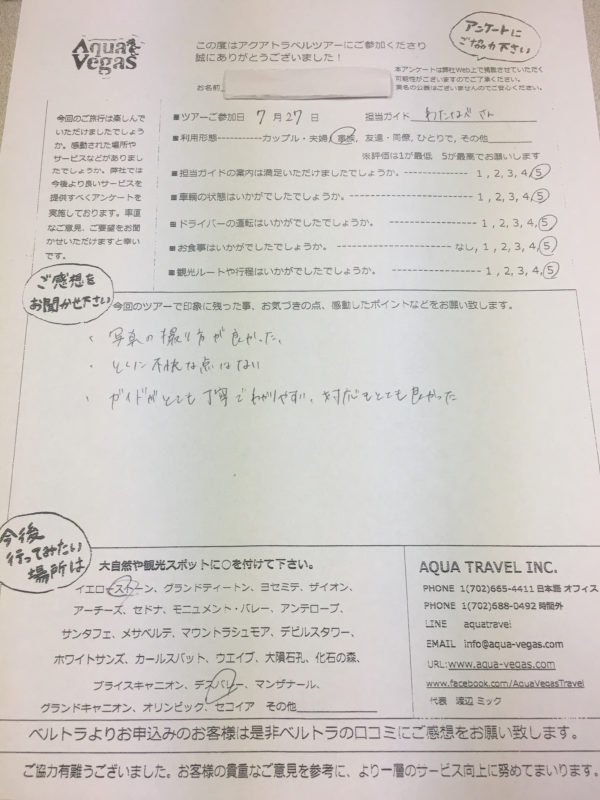 Aqua
Vegas
この度はアクアトラベルツアーにご参加くださり
誠にありがとうございました！
アンケートに
ご協力下さい
本アンケートは弊社Web上で掲載させていただく
可能性がございますのでご了承ください。
実名の公表はございませんのでご安心ください。
お名前
■ツアーご参加日 7月27日 担当ガイド わたなべ さん
■利用形態-----------カップル・夫婦, 家族, 友達・同僚, ひとりで, その他
※評価は1が最低、5が最高でお願いします
今回のご旅行は楽しんで
いただけましたでしょう
か。感動された場所や
サービスなどがありまし
たでしょうか。弊社では
今後より良いサービスを
提供すべくアンケートを
実施しております。率直
なご意見、ご要望をお聞
かせいただけますと幸い
です。
■担当ガイドの案内は満足いただけましたでしょうか。 --------------- 1 , 2, 3, 4, 5
■車輛の状態はいかがでしたでしょうか。 --------------- 1 , 2, 3, 4, 5
■ドライバーの運転はいかがでしたでしょうか。 --------------- 1 , 2, 3, 4, 5
■お食事はいかがでしたでしょうか。 --------------- なし, 1, 2, 3, 4, 5
■観光ルートや行程はいかがでしたでしょうか。 --------------- 1 , 2, 3, 4, 5
ご感想を
お聞かせ下さい
今回のツアーで印象に残った事、お気づきの点、感動したポイントなどをお願い致します。
・写真の撮り方が良かった、
・とくに不快な点はない
・ガイドがとても丁寧でわかりやすい、対応もとても良かった
今後
行ってみたい
場所は
大自然や観光スポットに○を付けて下さい。
イエローストーン、グランドティートン、ヨセミテ、ザイオン、
アーチーズ、セドナ、モニュメント・バレー、アンテロープ、
サンタフェ、メサベルテ、マウントラシュモア、デビルスタワー、
ホワイトサンズ、カールスバット、ウエイブ、大隕石孔、化石の森、
ブライスキャニオン、デスバレー、マンザナール、
グランドキャニオン、オリンピック、セコイア その他
AQUA TRAVEL INC.
PHONE 1(702)665-4411 日本語 オフィス
PHONE 1(702)688-0492 時間外
LINE aquatravel
EMAIL info@aqua-vegas.com
URL:www.aqua-vegas.com
www.facebook.com/AquaVegasTravel
代表 渡辺 ミック
ベルトラよりお申込みのお客様は是非ベルトラの口コミにご感想をお願い致します。
ご協力有難うございました。お客様の貴重なご意見を参考に、より一層のサービス向上に努めてまいります。